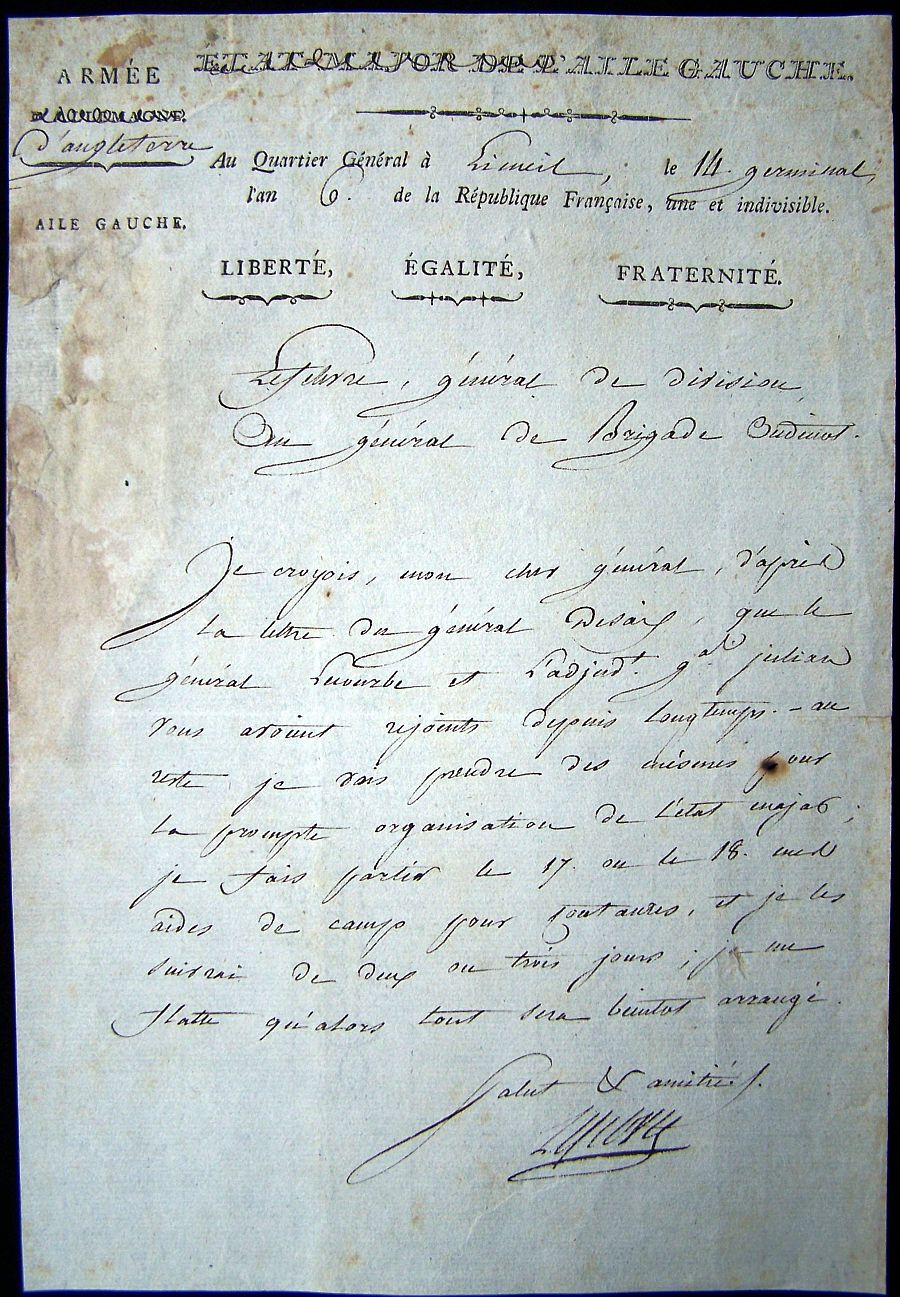 ARMÉE
D'ALLEMAGNE.
d'angleterre
AILE GAUCHE.
ÉTAT-MAJOR DE L'AILE GAUCHE.
Au Quartier Général à Limeil, le 14 germinal,
l'an 6. de la République Française, une et indivisible.
LIBERTÉ, ÉGALITÉ, FRATERNITÉ.
Lefebvre, général de division
Au général de Brigade Oudinot.
Je croyois, mon cher général, d'après
la lettre du général Desaix, que le
général Lecourbe et l'adjudt. gal. julian
vous avoient rejoints depuis longtemps. - au
reste je vais prendre des mesures pour
la prompte organisation de l'état major;
je fais partir le 17. ou le 18. mes
aides de camp pour Coutances, et je les
suivrai de deux ou trois jours; je me
flatte qu'alors tout sera bientot arrangé.
Salut & amitié.
Lefebvre